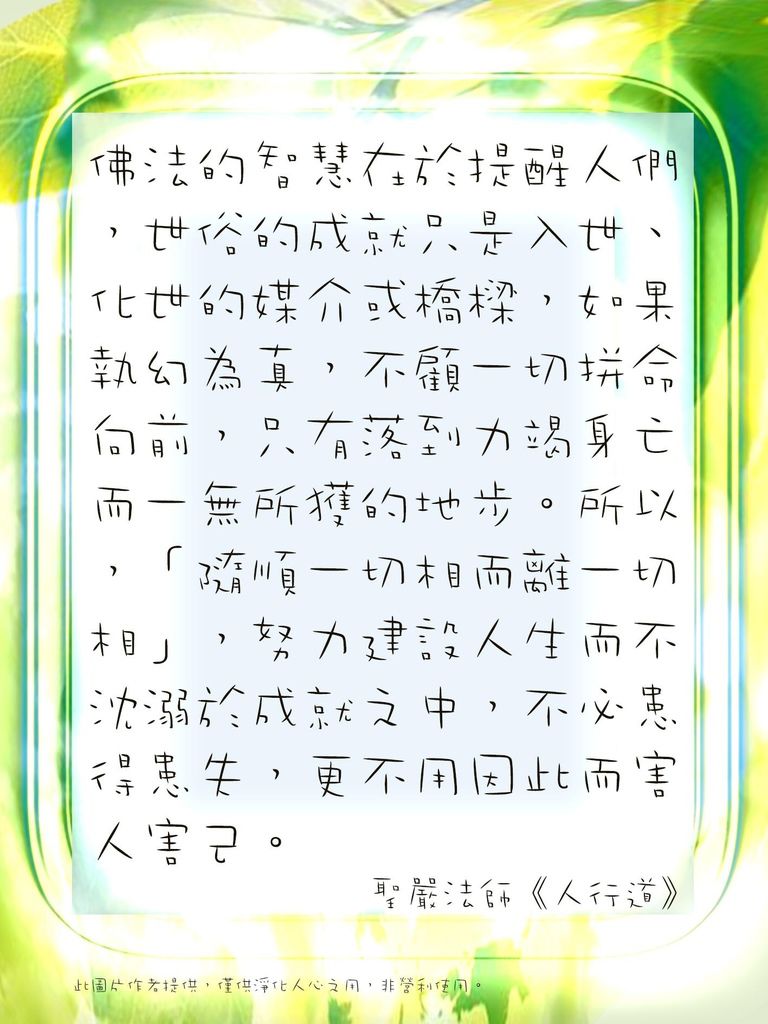 佛法的智慧在於提醒人們
，世俗的成就只是入世、
化世的媒介或橋樑，如果
執幻為真，不顧一切拼命
向前，只有落到力竭身亡
而一無所獲的地步。所以
，「隨順一切相而離一切
相」，努力建設人生而不
沈溺於成就之中，不必患
得患失，更不用因此而害
人害己。
聖嚴法師《人行道》
此圖片作者提供，僅供淨化人心之用，非營利使用。